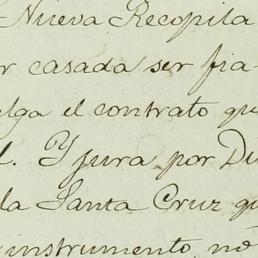 Nueva Recopila
r casada ser fia-
lga el contrato que
l. Y jura por Di
da Santa Cruz qu
instrumento, no